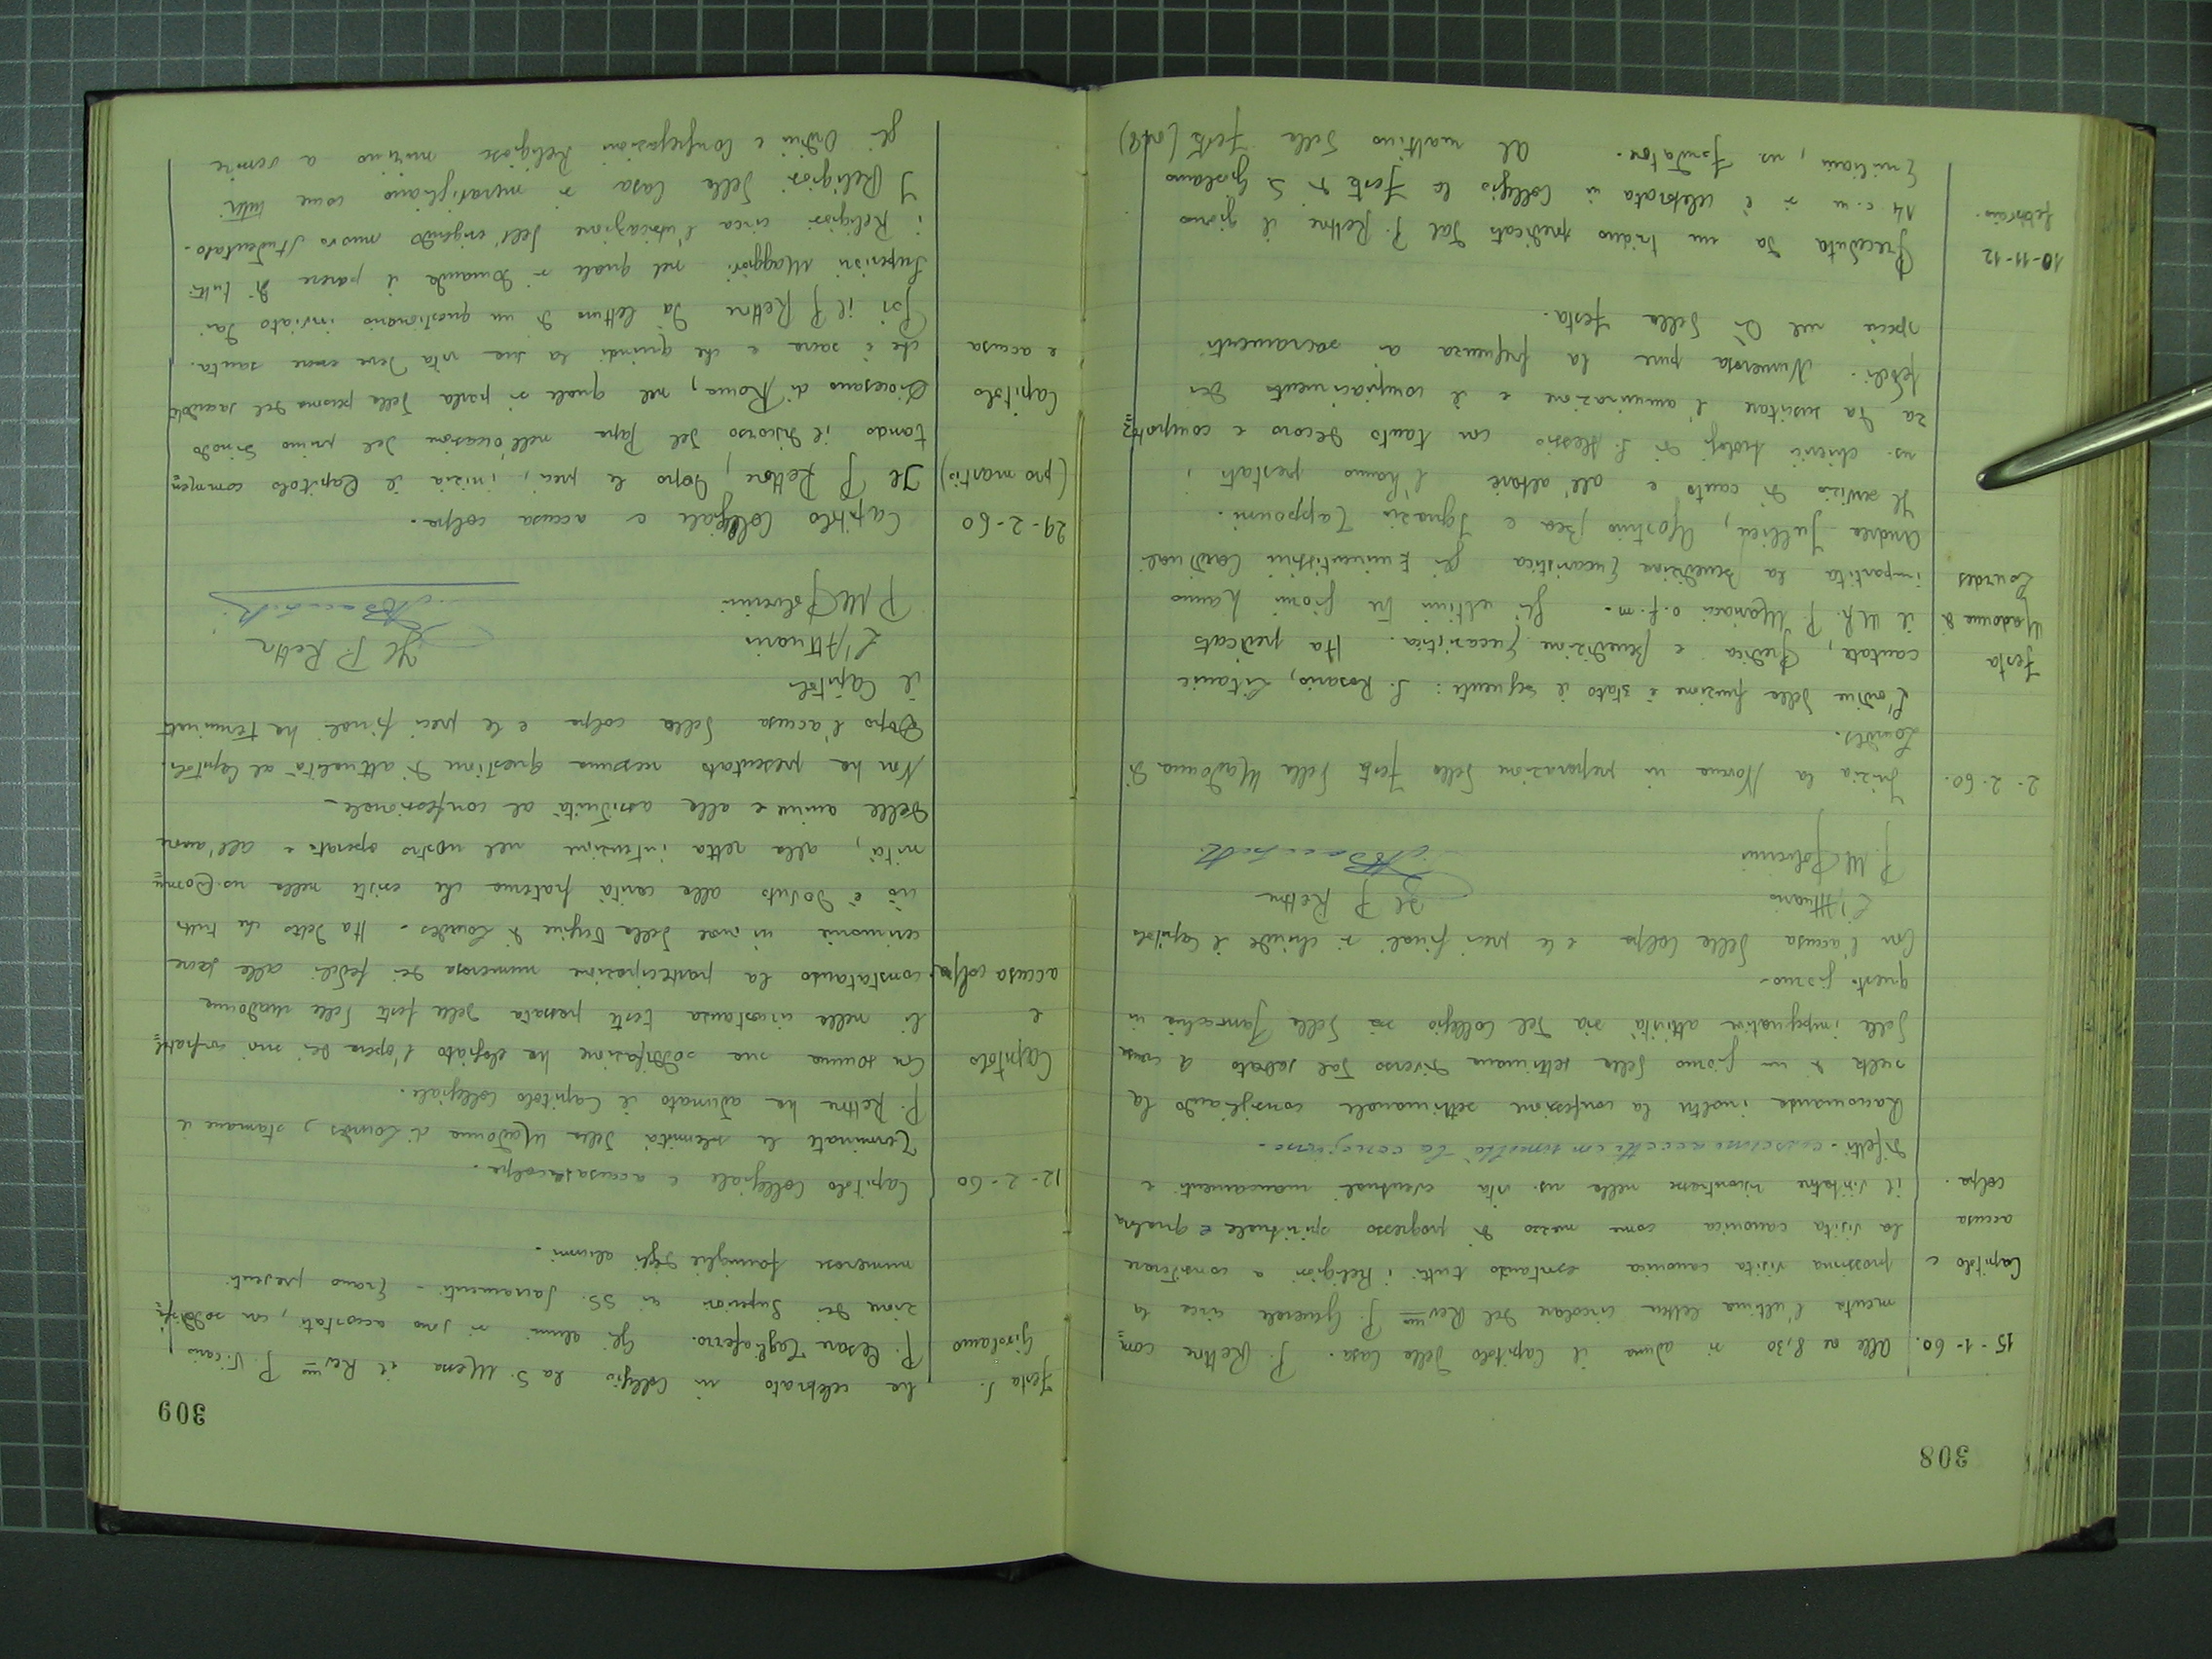 308
15-1-60. Alle ore 8,30 si aduna il Capitolo della Casa. P. Rettore com=
menta l'ultima lettera circolare del Rev.mo P. Generale circa la
Capitolo e prossima visita canonica esortando tutti i Religiosi a considerare
accusa la visita canonica come mezzo di progresso spirituale e qualora
colpa. il visitatore riscontrasse nella ns. vita eventuali mancamenti e
difetti -
Raccomanda inoltre la confessione settimanale consigliando la
scelta di un giorno della settimana diverso dal sabato a causa
delle impegnative attività sia del Collegio sia della Parrocchia in
questo giorno -
Con l'accusa della colpa e le preci finali si chiude il Capitolo
L'Attuario Il P. Rettore
P. M. Polverini
2-2-60. Inizia la Novena in preparazione della festa della Madonna di
Lourdes.
L'ordine della funzione è stato il seguente: S. Rosario, Litanie
Festa cantate, Predica e Benedizione Eucaristica. Ha predicato
Madonna di il M.R. P. Marinoci o.f.m. Gli ultimi tre giorni hanno
Lourdes impartita la Benedizione Eucaristica gli Eminentissimi Cardinali
Andrea Jullien, Agostino Bea e Ignazio Tappouni.
Il servizio di canto e all'altare l'hanno prestati i
ns. chierici teologi di S. Alessio con tanto decoro e compostez=
za da suscitare l'ammirazione e il compiacimento dei
fedeli. Numerosa pure la frequenza ai sacramenti
specie nel dì della festa.
10-11-12 Preceduta da un triduo predicato dal P. Rettore il giorno
febbraio. 14 c.m. si è celebrata in Collegio la festa di S. Girolamo
Emiliani, ns. Fondatore. Al mattino della festa (ore 8)
309
Festa S. ha celebrato in Collegio la S. Messa il Rev.mo P. Vicario,
Girolamo P. Cesare Tagliaferro. Gli alunni si sono accostati, con soddisfa=
zione dei Superiori ai SS. Sacramenti - Erano presenti
numerose famiglie degli alunni.
12-2-60 Capitolo Collegiale e accusa colpa.
Terminate le solennità della Madonna di Lourdes, stamane il
P. Rettore ha adunato il Capitolo Collegiale.
Capitolo Con somma sua soddisfazione ha elogiato l'opera dei suoi confratel=
e li nella circostanza testé passata della festa della Madonna
accusa colpa. constatando la partecipazione numerosa dei fedeli alle sacre
cerimonie in onore della Vergine di Lourdes. Ha detto che tutto
ciò è dovuto alla carità fraterna che esiste nella ns. Comu=
nità, alla retta intenzione nel nostro operato e all'amore
delle anime e alla assiduità al confessionale -
Non ha presentato nessuna questione di attualità al Capitolo.
Dopo l'accusa della colpa e le preci finali ha terminato
il Capitolo
L'Attuario Il P. Rettore
P. M. Polverini
29-2-60 Capitolo Collegiale e accusa colpa.
(pro martio) Il P. Rettore, dopo le preci, inizia il Capitolo commen=
tando il discorso del Papa nell'occasione del primo Sinodo
Capitolo Diocesano di Roma, nel quale si parla della persona del sacerdote
e accusa che è sacra e che quindi la sua vita deve essere santa.
Poi il P. Rettore dà lettura di un questionario inviato dai
Superiori Maggiori nel quale si domanda il parere di tutti
i Religiosi circa l'ubicazione dell'erigendo nuovo studentato.
I Religiosi della Casa si meravigliano come tutti
gli Ordini e Congregazioni Religiose mirino a venire